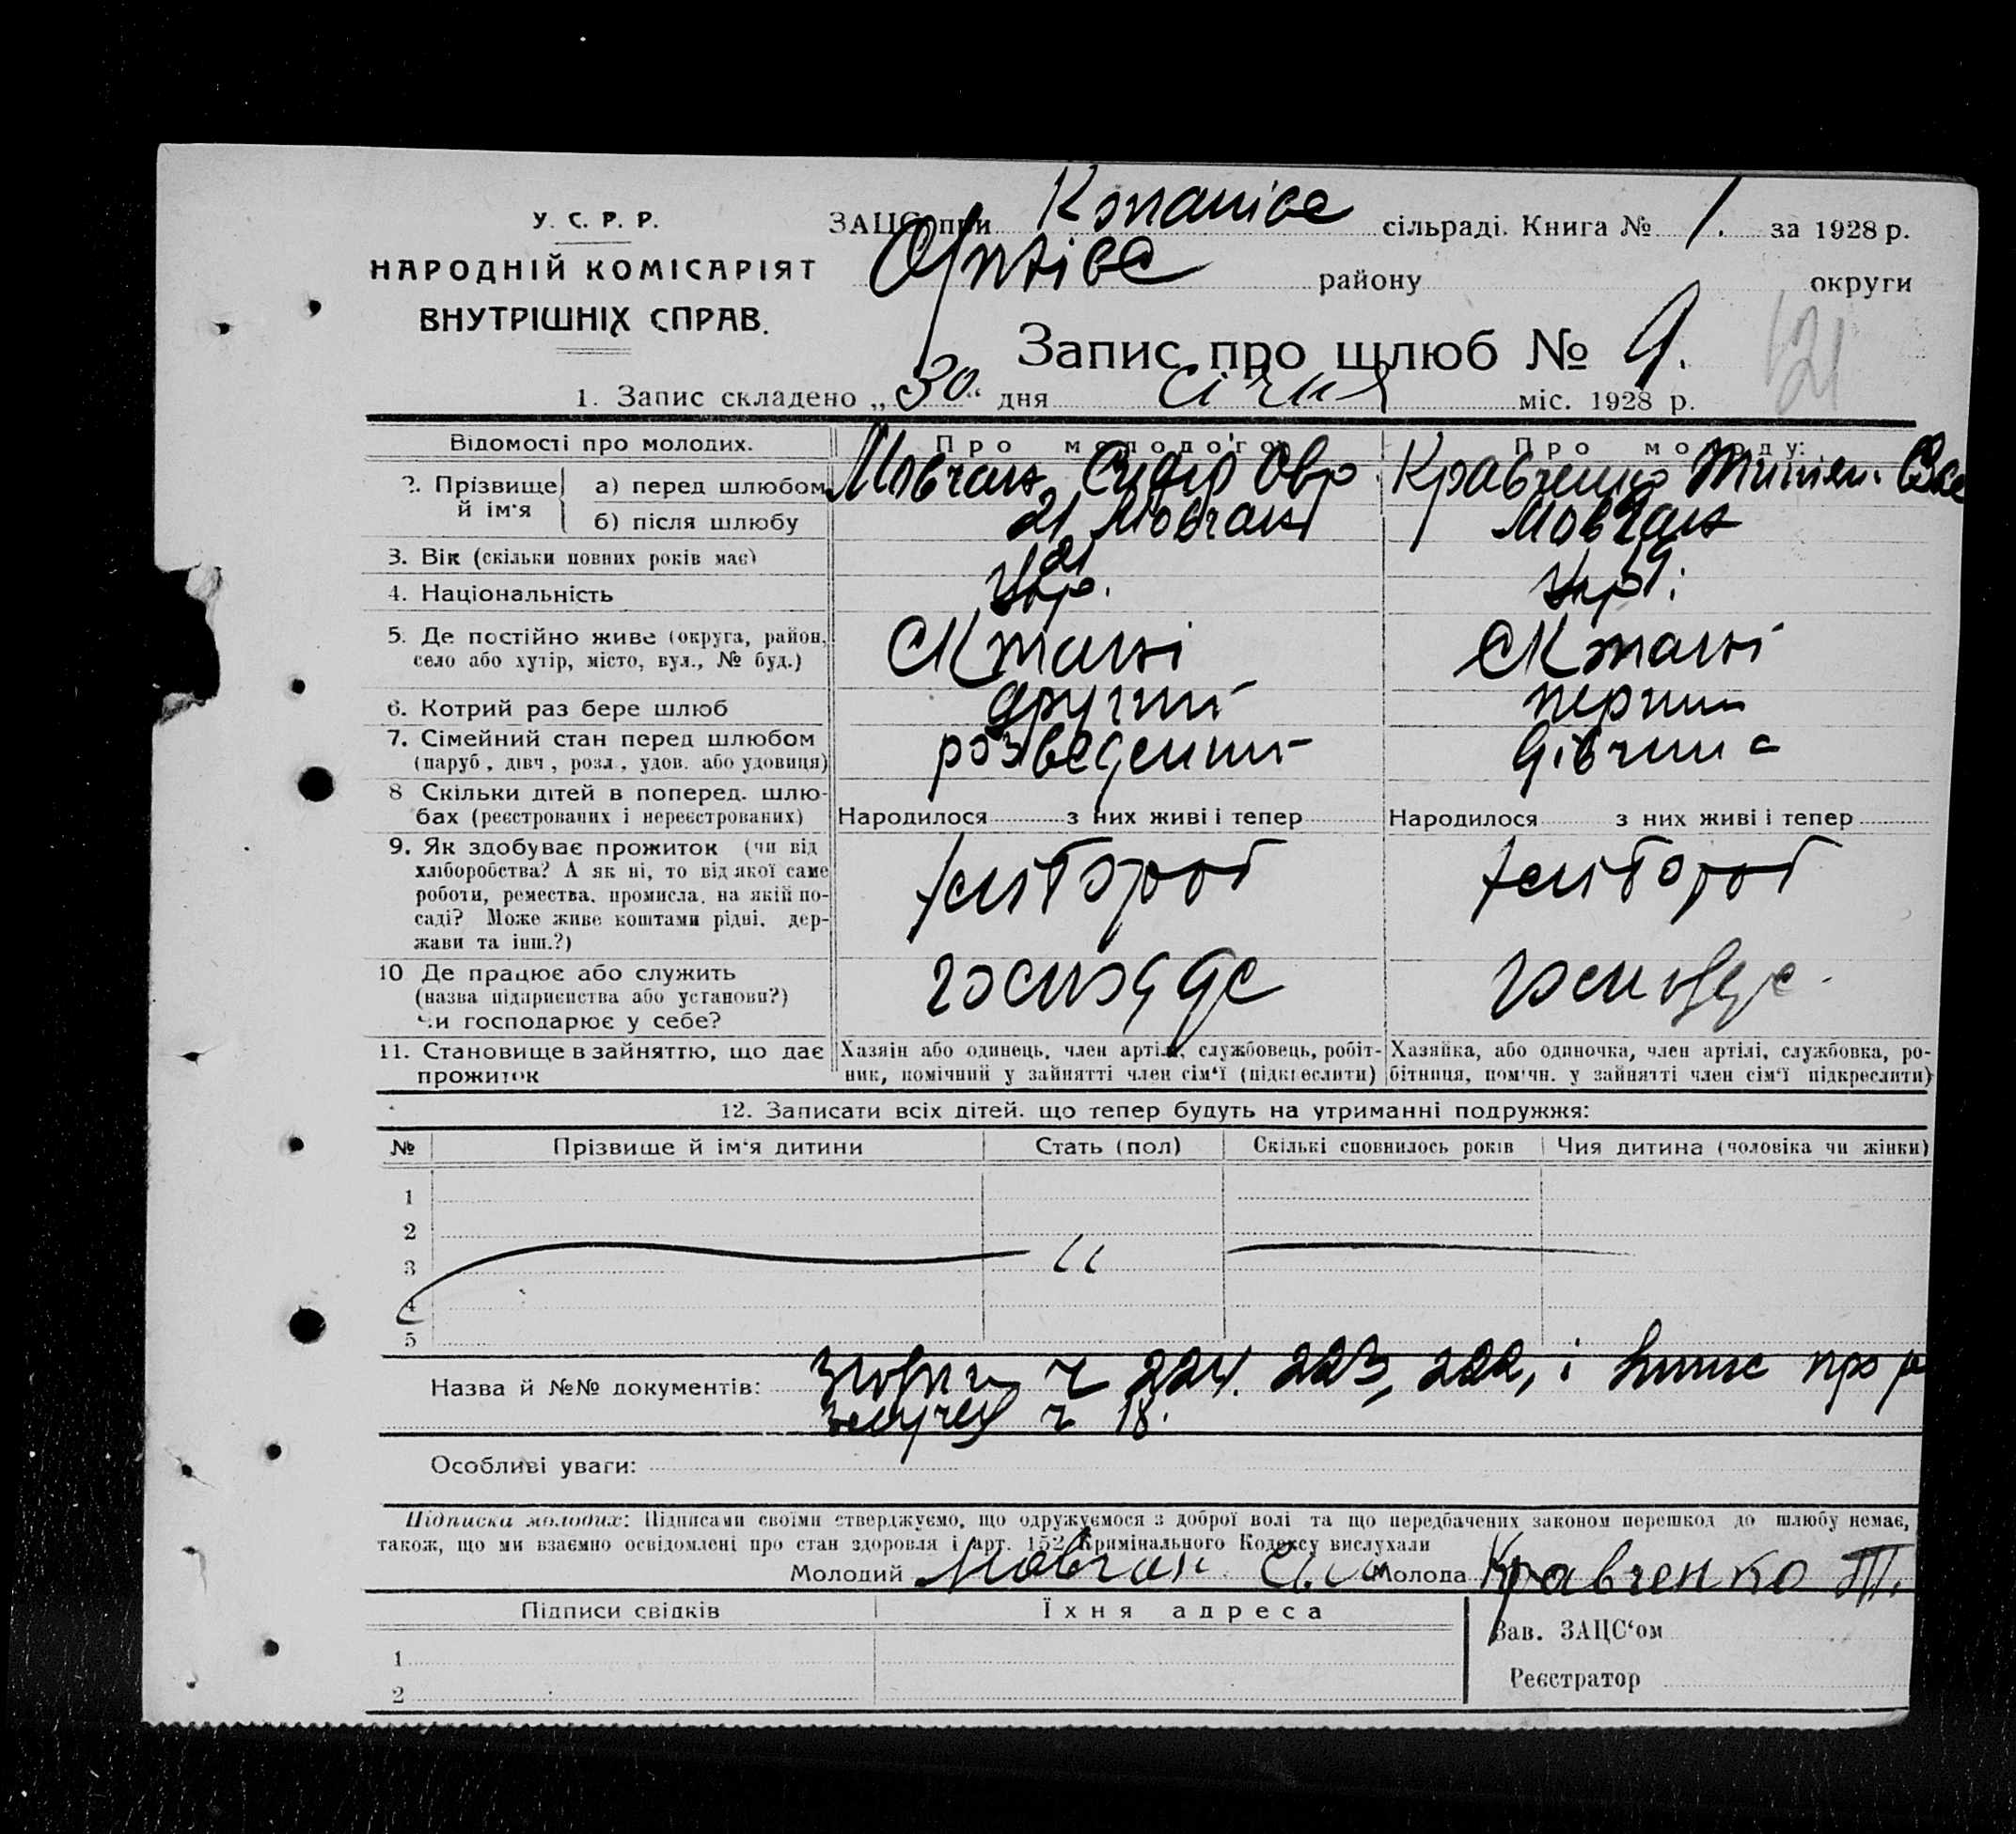 У. С. Р. Р.
НАРОДНІЙ КОМІСАРІЯТ
ВНУТРІШНІХ СПРАВ.
ЗАЦС при сільраді. Книга № 1. за 1928 р.
району округи
Запис про шлюб № 9.
121
1. Запис складено „30“ дня січня міс. 1928 р.
Відомості про молодих. Про молодого: Про молоду:
2. Прізвище й ім'я а) перед шлюбом Мовчан Сидір Овр. Кравченко
б) після шлюбу 21 Мовчан Мовчан
3. Вік (скільки повних років має) 21 19
4. Національність Укр. Укр.
5. Де постійно живе (округа, район, село або хутір, місто, вул., № буд.)
6. Котрий раз бере шлюб другий перший
7. Сімейний стан перед шлюбом (паруб., дівч., розл., удов. або удовиця) розведений дівчина
8 Скільки дітей в поперед. шлюбах (реєстрованих і нереєстрованих) Народилося з них живі і тепер Народилося з них живі і тепер
9. Як здобуває прожиток (чи від хліборобства? А як ні, то від якої саме роботи, ремества, промисла, на якій посаді? Може живе коштами рідні, держави та інш.?) хлібороб хлібороб
10 Де працює або служить (назва підприємства або установи?) Чи господарює у себе?
11. Становище в зайняттю, що дає прожиток Хазяїн або одинець, член артілі, службовець, робітник, помічний у зайнятті член сім'ї (підкреслити) Хазяйка, або одиночка, член артілі, службовка, робітниця, пом'чн. у зайнятті член сім'ї підкреслити)
12. Записати всіх дітей. що тепер будуть на утриманні подружжя:
№ Прізвише й ім'я дитини Стать (пол) Скількі сповнилось років Чия дитина (чоловіка чи жінки)
1
2
3
4
5
Назва й №№ документів: ч 224. 223, 222, і про
ч 18.
Особливі уваги:
Підписка молодих: Підписами своїми стверджуємо, що одружуємося з доброї волі та що передбачених законом перешкод до шлюбу немає,
також, що ми взаємно освідомлені про стан здоровля і арт. 152 Кримінального Кодексу вислухали
Молодий Мовчан Молода Кравченко Т.
Підписи свідків Їхня адреса
Зав. ЗАЦС'ом
1
Реєстратор
2